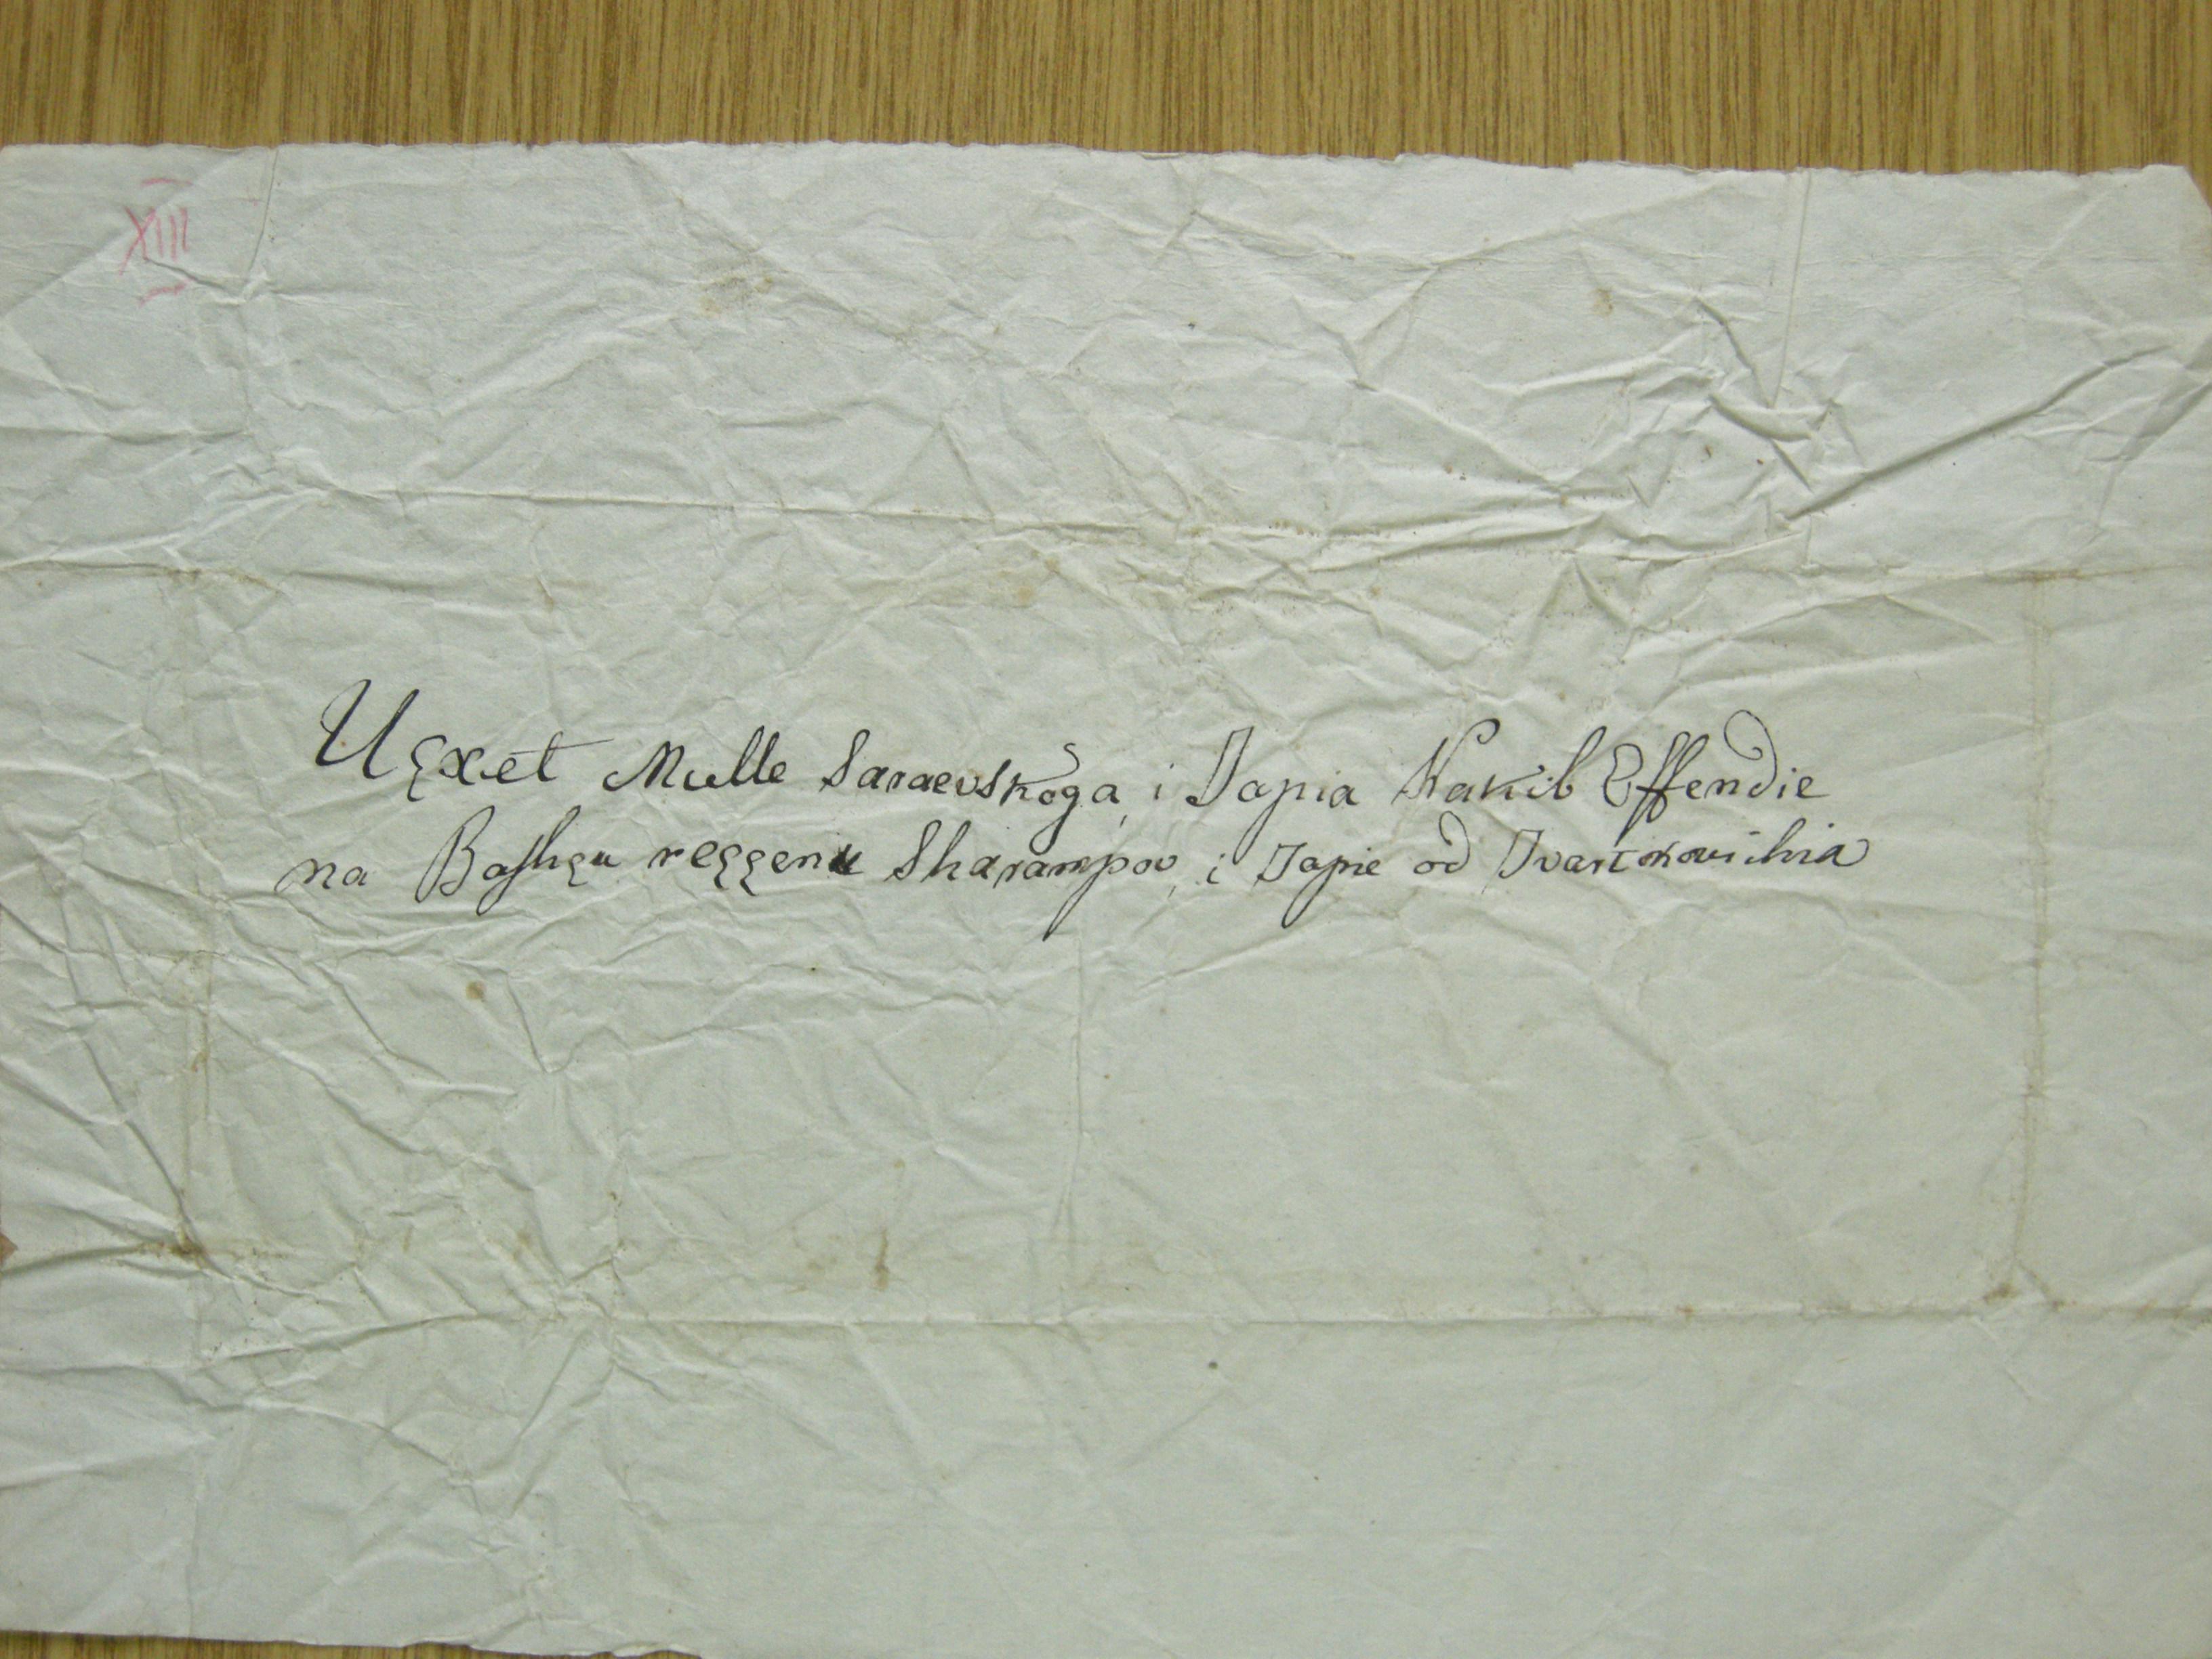 XIII
Uçxet Mulle Saraevskoga, i Japia Nakib Effendie
na Bashçu reççenu Sharampov, i Japie od Ivartkovichia